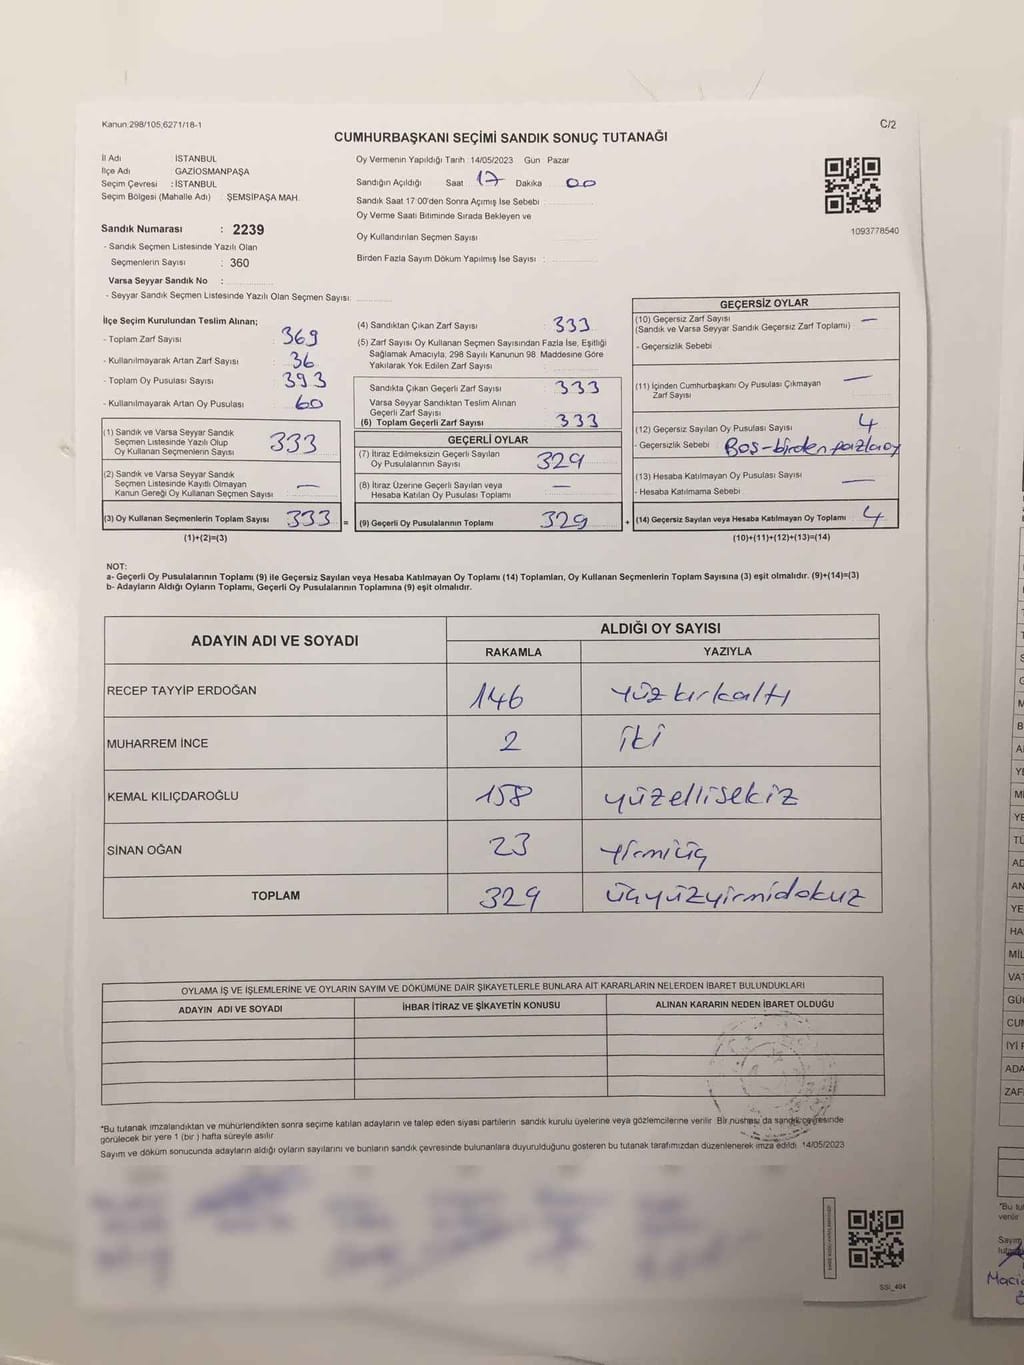 Kanun:298/105,6271/18-1
C/2
CUMHURBAŞKANI SEÇİMİ SANDIK SONUÇ TUTANAĞI
İl Adı İSTANBUL
İlçe Adı GAZİOSMANPAŞA
Seçim Çevresi : İSTANBUL
Seçim Bölgesi (Mahalle Adı) : ŞEMSİPAŞA MAH.
Sandık Numarası : 2239
- Sandık Seçmen Listesinde Yazılı Olan
Seçmenlerin Sayısı : 360
Varsa Seyyar Sandık No :
- Seyyar Sandık Seçmen Listesinde Yazılı Olan Seçmen Sayısı:
Oy Vermenin Yapıldığı Tarih :14/05/2023 Gün Pazar
Sandığın Açıldığı Saat 17 Dakika 00
Sandık Saat 17:00'den Sonra Açımış İse Sebebi :
Oy Verme Saati Bitiminde Sırada Bekleyen ve
Oy Kullandırılan Seçmen Sayısı
Birden Fazla Sayım Döküm Yapılmış İse Sayısı :
1093778540
İlçe Seçim Kurulundan Teslim Alınan;
- Toplam Zarf Sayısı : 369
- Kullanılmayarak Artan Zarf Sayısı : 36
- Toplam Oy Pusulası Sayısı : 393
- Kullanılmayarak Artan Oy Pusulası : 60
(1) Sandık ve Varsa Seyyar Sandık
Seçmen Listesinde Yazılı Olup
Oy Kullanan Seçmenlerin Sayısı 333
(2) Sandık ve Varsa Seyyar Sandık
Seçmen Listesinde Kayıtlı Olmayan
Kanun Gereği Oy Kullanan Seçmen Sayısı —
(3) Oy Kullanan Seçmenlerin Toplam Sayısı 333 =
(1)+(2)=(3)
(4) Sandıktan Çıkan Zarf Sayısı : 333
(5) Zarf Sayısı Oy Kullanan Seçmen Sayısından Fazla İse, Eşitliği
Sağlamak Amacıyla, 298 Sayılı Kanunun 98. Maddesine Göre
Yakılarak Yok Edilen Zarf Sayısı :
Sandıkta Çıkan Geçerli Zarf Sayısı : 333
Varsa Seyyar Sandıktan Teslim Alınan
Geçerli Zarf Sayısı
(6) Toplam Geçerli Zarf Sayısı : 333
GEÇERLİ OYLAR
(7) İtiraz Edilmeksizin Geçerli Sayılan
Oy Pusulalarının Sayısı 329
(8) İtiraz Üzerine Geçerli Sayılan veya
Hesaba Katılan Oy Pusulası Toplamı —
(9) Geçerli Oy Pusulalarının Toplamı 329 +
GEÇERSİZ OYLAR
(10) Geçersiz Zarf Sayısı —
(Sandık ve Varsa Seyyar Sandık Geçersiz Zarf Toplamı)
- Geçersizlik Sebebi
(11) İçinden Cumhurbaşkanı Oy Pusulası Çıkmayan —
Zarf Sayısı
(12) Geçersiz Sayılan Oy Pusulası Sayısı 4
- Geçersizlik Sebebi : Boş-birden fazla oy
(13) Hesaba Katılmayan Oy Pusulası Sayısı —
- Hesaba Katılmama Sebebi
(14) Geçersiz Sayılan veya Hesaba Katılmayan Oy Toplamı 4
(10)+(11)+(12)+(13)=(14)
NOT:
a- Geçerli Oy Pusulalarının Toplamı (9) ile Geçersiz Sayılan veya Hesaba Katılmayan Oy Toplamı (14) Toplamları, Oy Kullanan Seçmenlerin Toplam Sayısına (3) eşit olmalıdır. (9)+(14)=(3)
b- Adayların Aldığı Oyların Toplamı, Geçerli Oy Pusulalarının Toplamına (9) eşit olmalıdır.
ADAYIN ADI VE SOYADI
ALDIĞI OY SAYISI
RAKAMLA YAZIYLA
RECEP TAYYİP ERDOĞAN 146 yüzkırkaltı
MUHARREM İNCE 2 iki
KEMAL KILIÇDAROĞLU 158 yüzellisekiz
SİNAN OĞAN 23 yirmiüç
TOPLAM 329 üçyüzyirmidokuz
OYLAMA İŞ VE İŞLEMLERİNE VE OYLARIN SAYIM VE DÖKÜMÜNE DAİR ŞİKAYETLERLE BUNLARA AİT KARARLARIN NELERDEN İBARET BULUNDUKLARI
ADAYIN ADI VE SOYADI İHBAR İTİRAZ VE ŞİKAYETİN KONUSU ALINAN KARARIN NEDEN İBARET OLDUĞU
*Bu tutanak imzalandıktan ve mühürlendikten sonra seçime katılan adayların ve talep eden siyasi partilerin sandık kurulu üyelerine veya gözlemcilerine verilir. Bir nushası da sandık çevresinde
görülecek bir yere 1 (bir ) hafta süreyle asılır.
Sayım ve döküm sonucunda adayların aldığı oyların sayılarını ve bunların sandık çevresinde bulunanlara duyurulduğunu gösteren bu tutanak tarafımızdan düzenlenerek imza edildi. 14/05/2023
SSİ_404